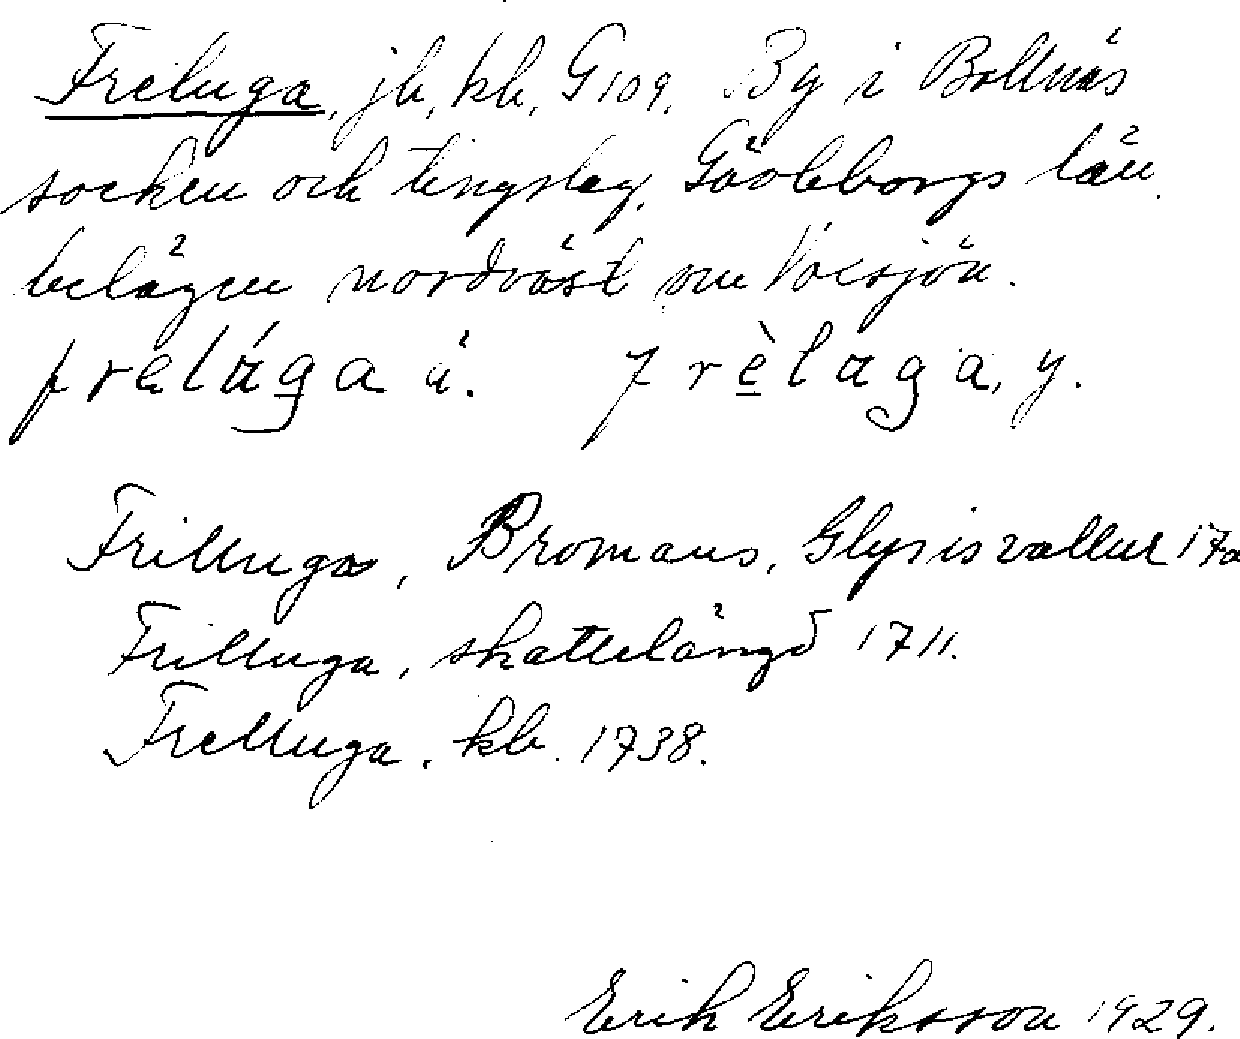 Freluga, jb, kb, G 109. By i Bollnäs
socken och tingslag, Gävleborgs län
belägen nordväst om Voxsjön.
frelága ä. frèlaga, y.
Frilluga, Bromans, Glysisvallur 17
Frilluga, skattelängd 1711.
Frelluga, kb. 1738.
Erik Eriksson 1929.